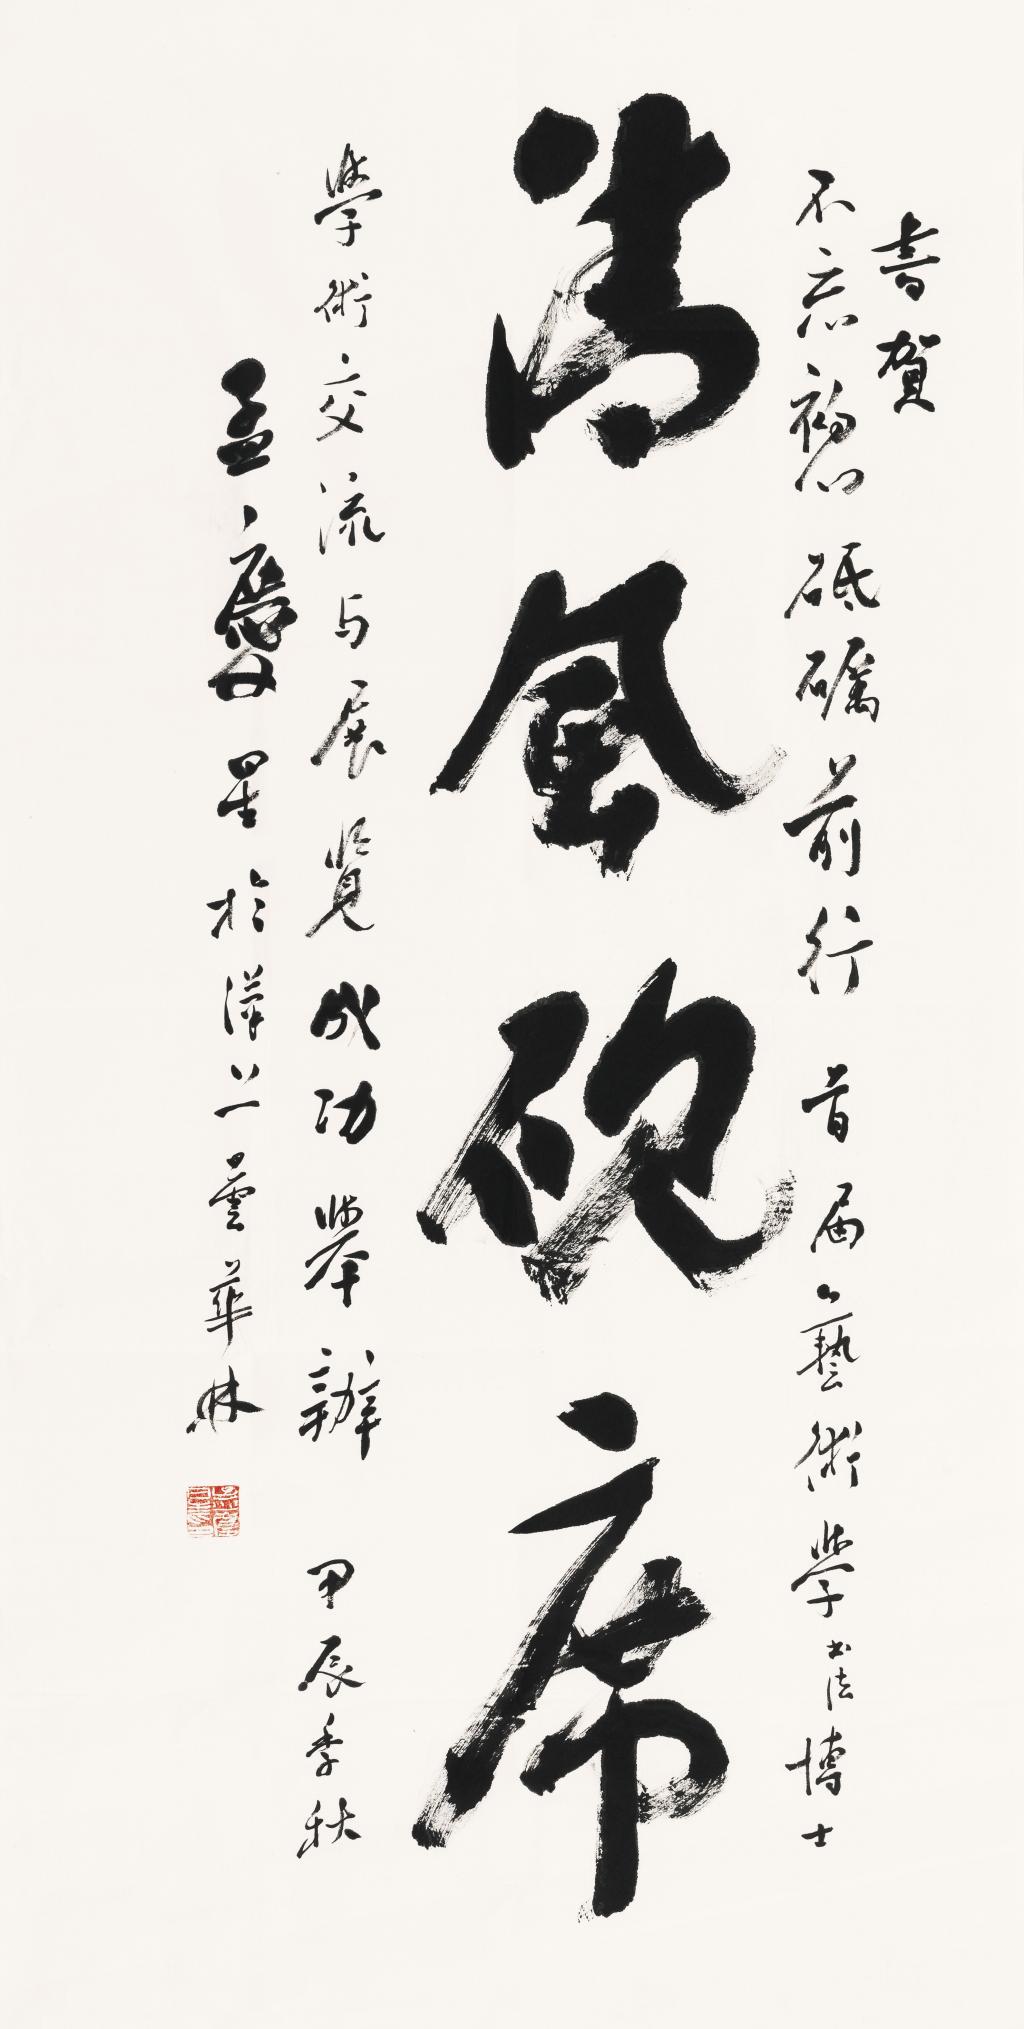 書賀
不忘初心砥礪前行首届藝術學書法博士
清風硯席
學術交流与展覽成功舉辦甲辰季秋
孟慶星於漢上曇華林